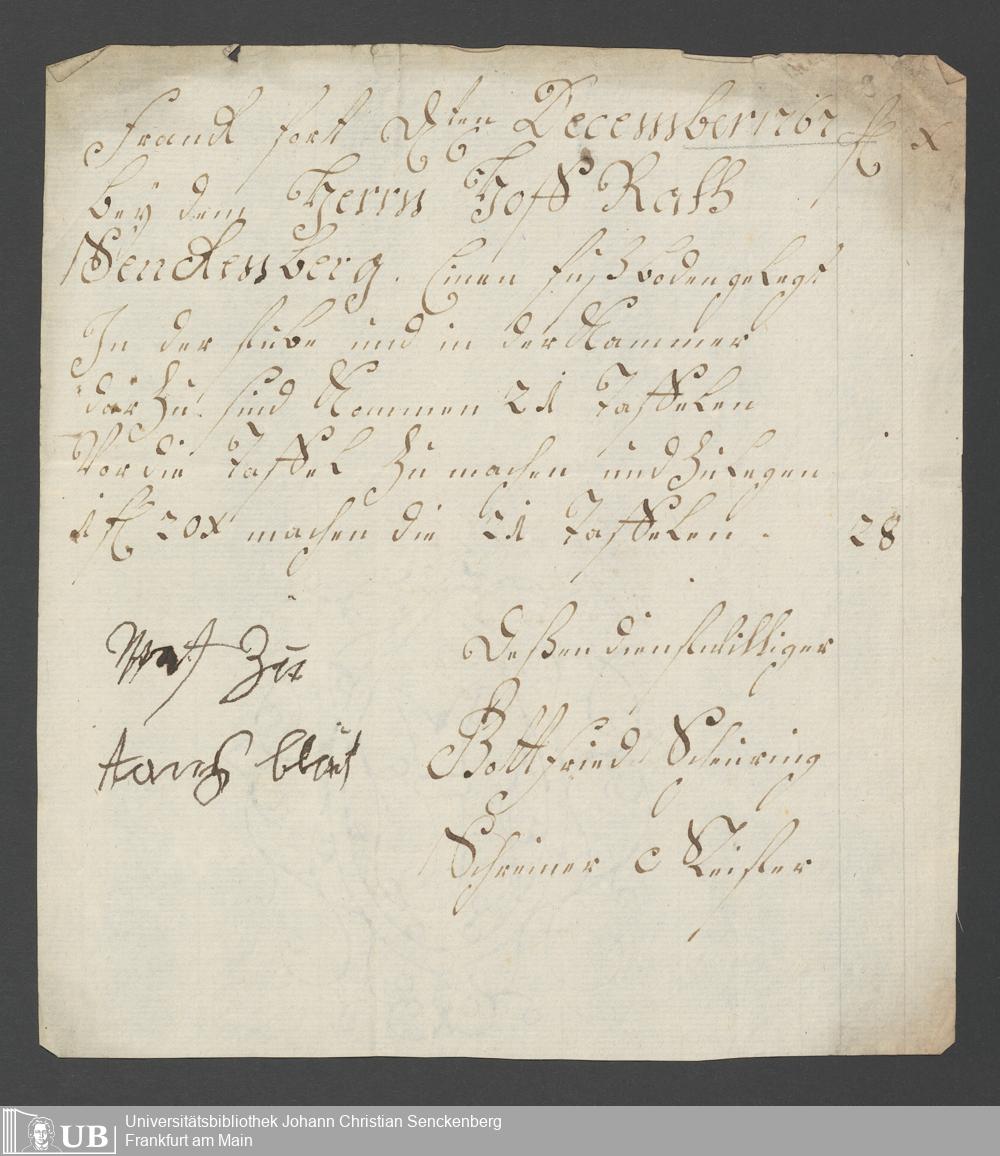 Franck fort ten December 1767 fl x
bey dem Herrn Hoff Rath
Senckenberg. Einen fußboden gelegt
In der stube und in der Kammer
dar Zu sind Kommen 21 Taffelen
Vor die Taffel Zu machen und Zu legen
1 fl 20 x machen die 21 Taffelen . 28
Deßen dienstwilliger
Gottfried Scheuring
Schreiner Meister
Zu
UB
Universitätsbibliothek Johann Christian Senckenberg
Frankfurt am Main